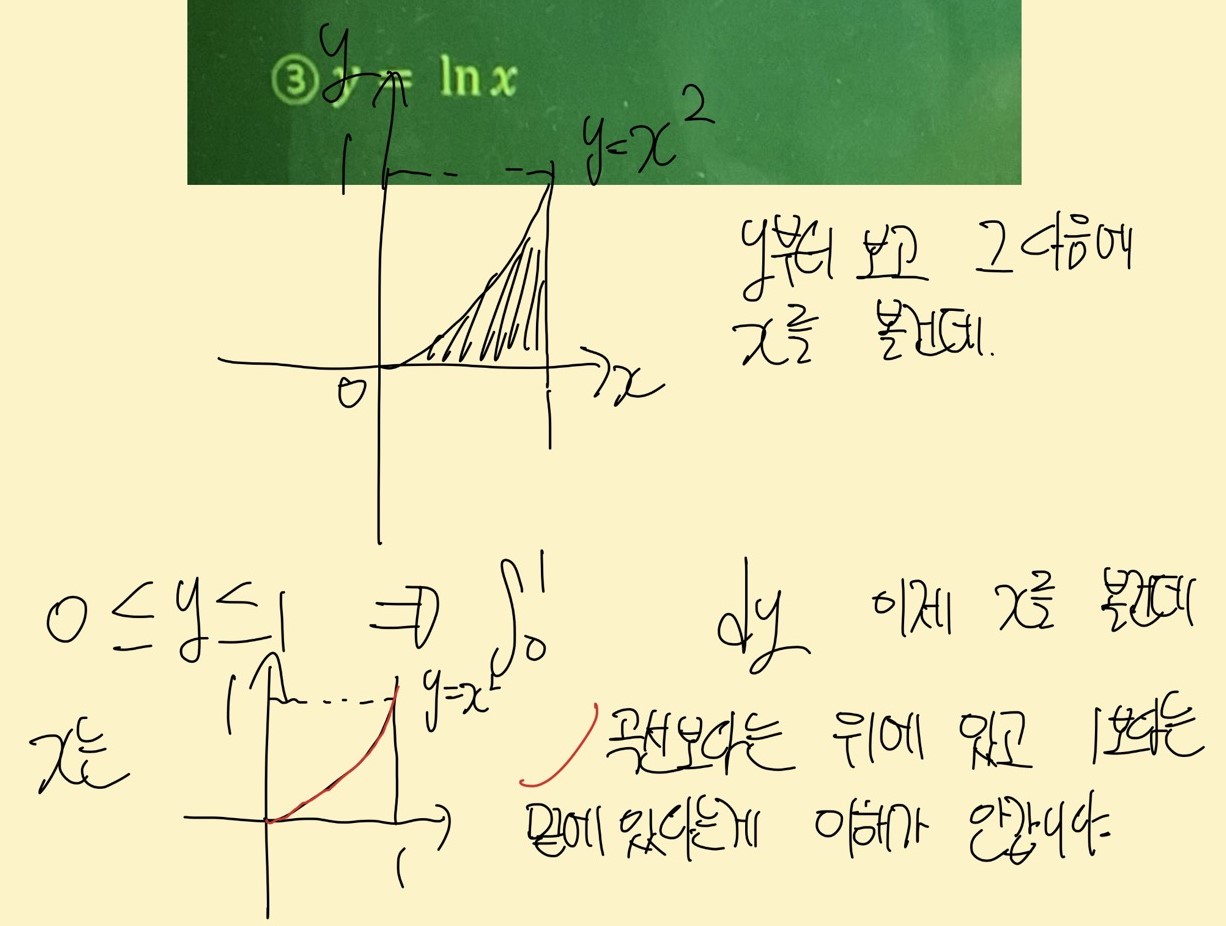 ③ y = ln x
y
1
y=x²
y부터 보고 그 다음에
x를 볼건데.
0
x
1
0 ≤ y ≤ 1 ⇒ ∫₀¹ dy 이제 x를 볼건데
1
y=x²
x는
곡선보다는 위에 있고 1보다는
밑에 있다는게 이해가 안갑니다.
1